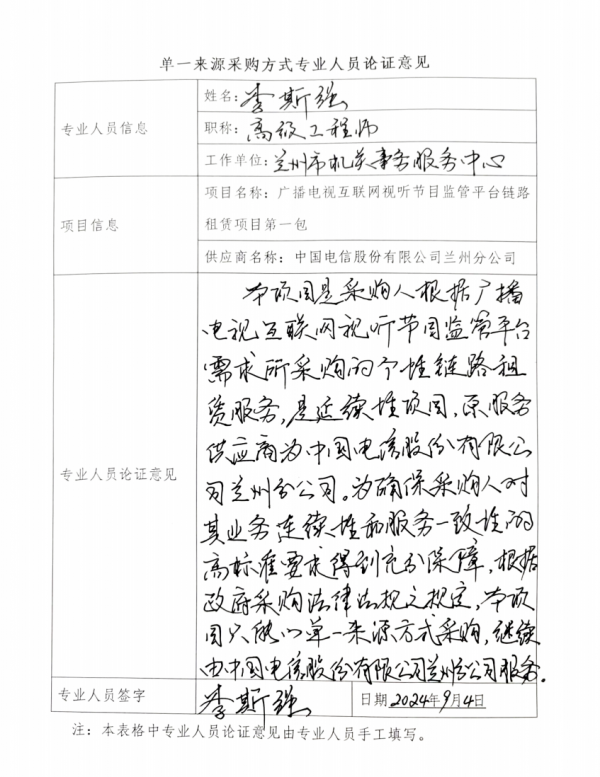 单一来源采购方式专业人员论证意见
专业人员信息
姓名:李斯强
职称:高级工程师
工作单位:兰州市机关事务服务中心
项目信息
项目名称:广播电视互联网视听节目监管平台链路
租赁项目第一包
供应商名称:中国电信股份有限公司兰州分公司
专业人员论证意见
本项目是采购人根据广播
电视互联网视听节目监管平台
需求所采购的个性链路租
赁服务,是延续性项目,原服务
供应商为中国电信股份有限公
司兰州分公司。为确保采购人对
其业务连续性和服务一致性的
高标准要求得到充分保障,根据
政府采购法律法规之规定,本项
目只能以单一来源方式采购,继续
由中国电信股份有限公司兰州分公司服务.
专业人员签字
李斯强
日期 2024年9月4日
注:本表格中专业人员论证意见由专业人员手工填写。